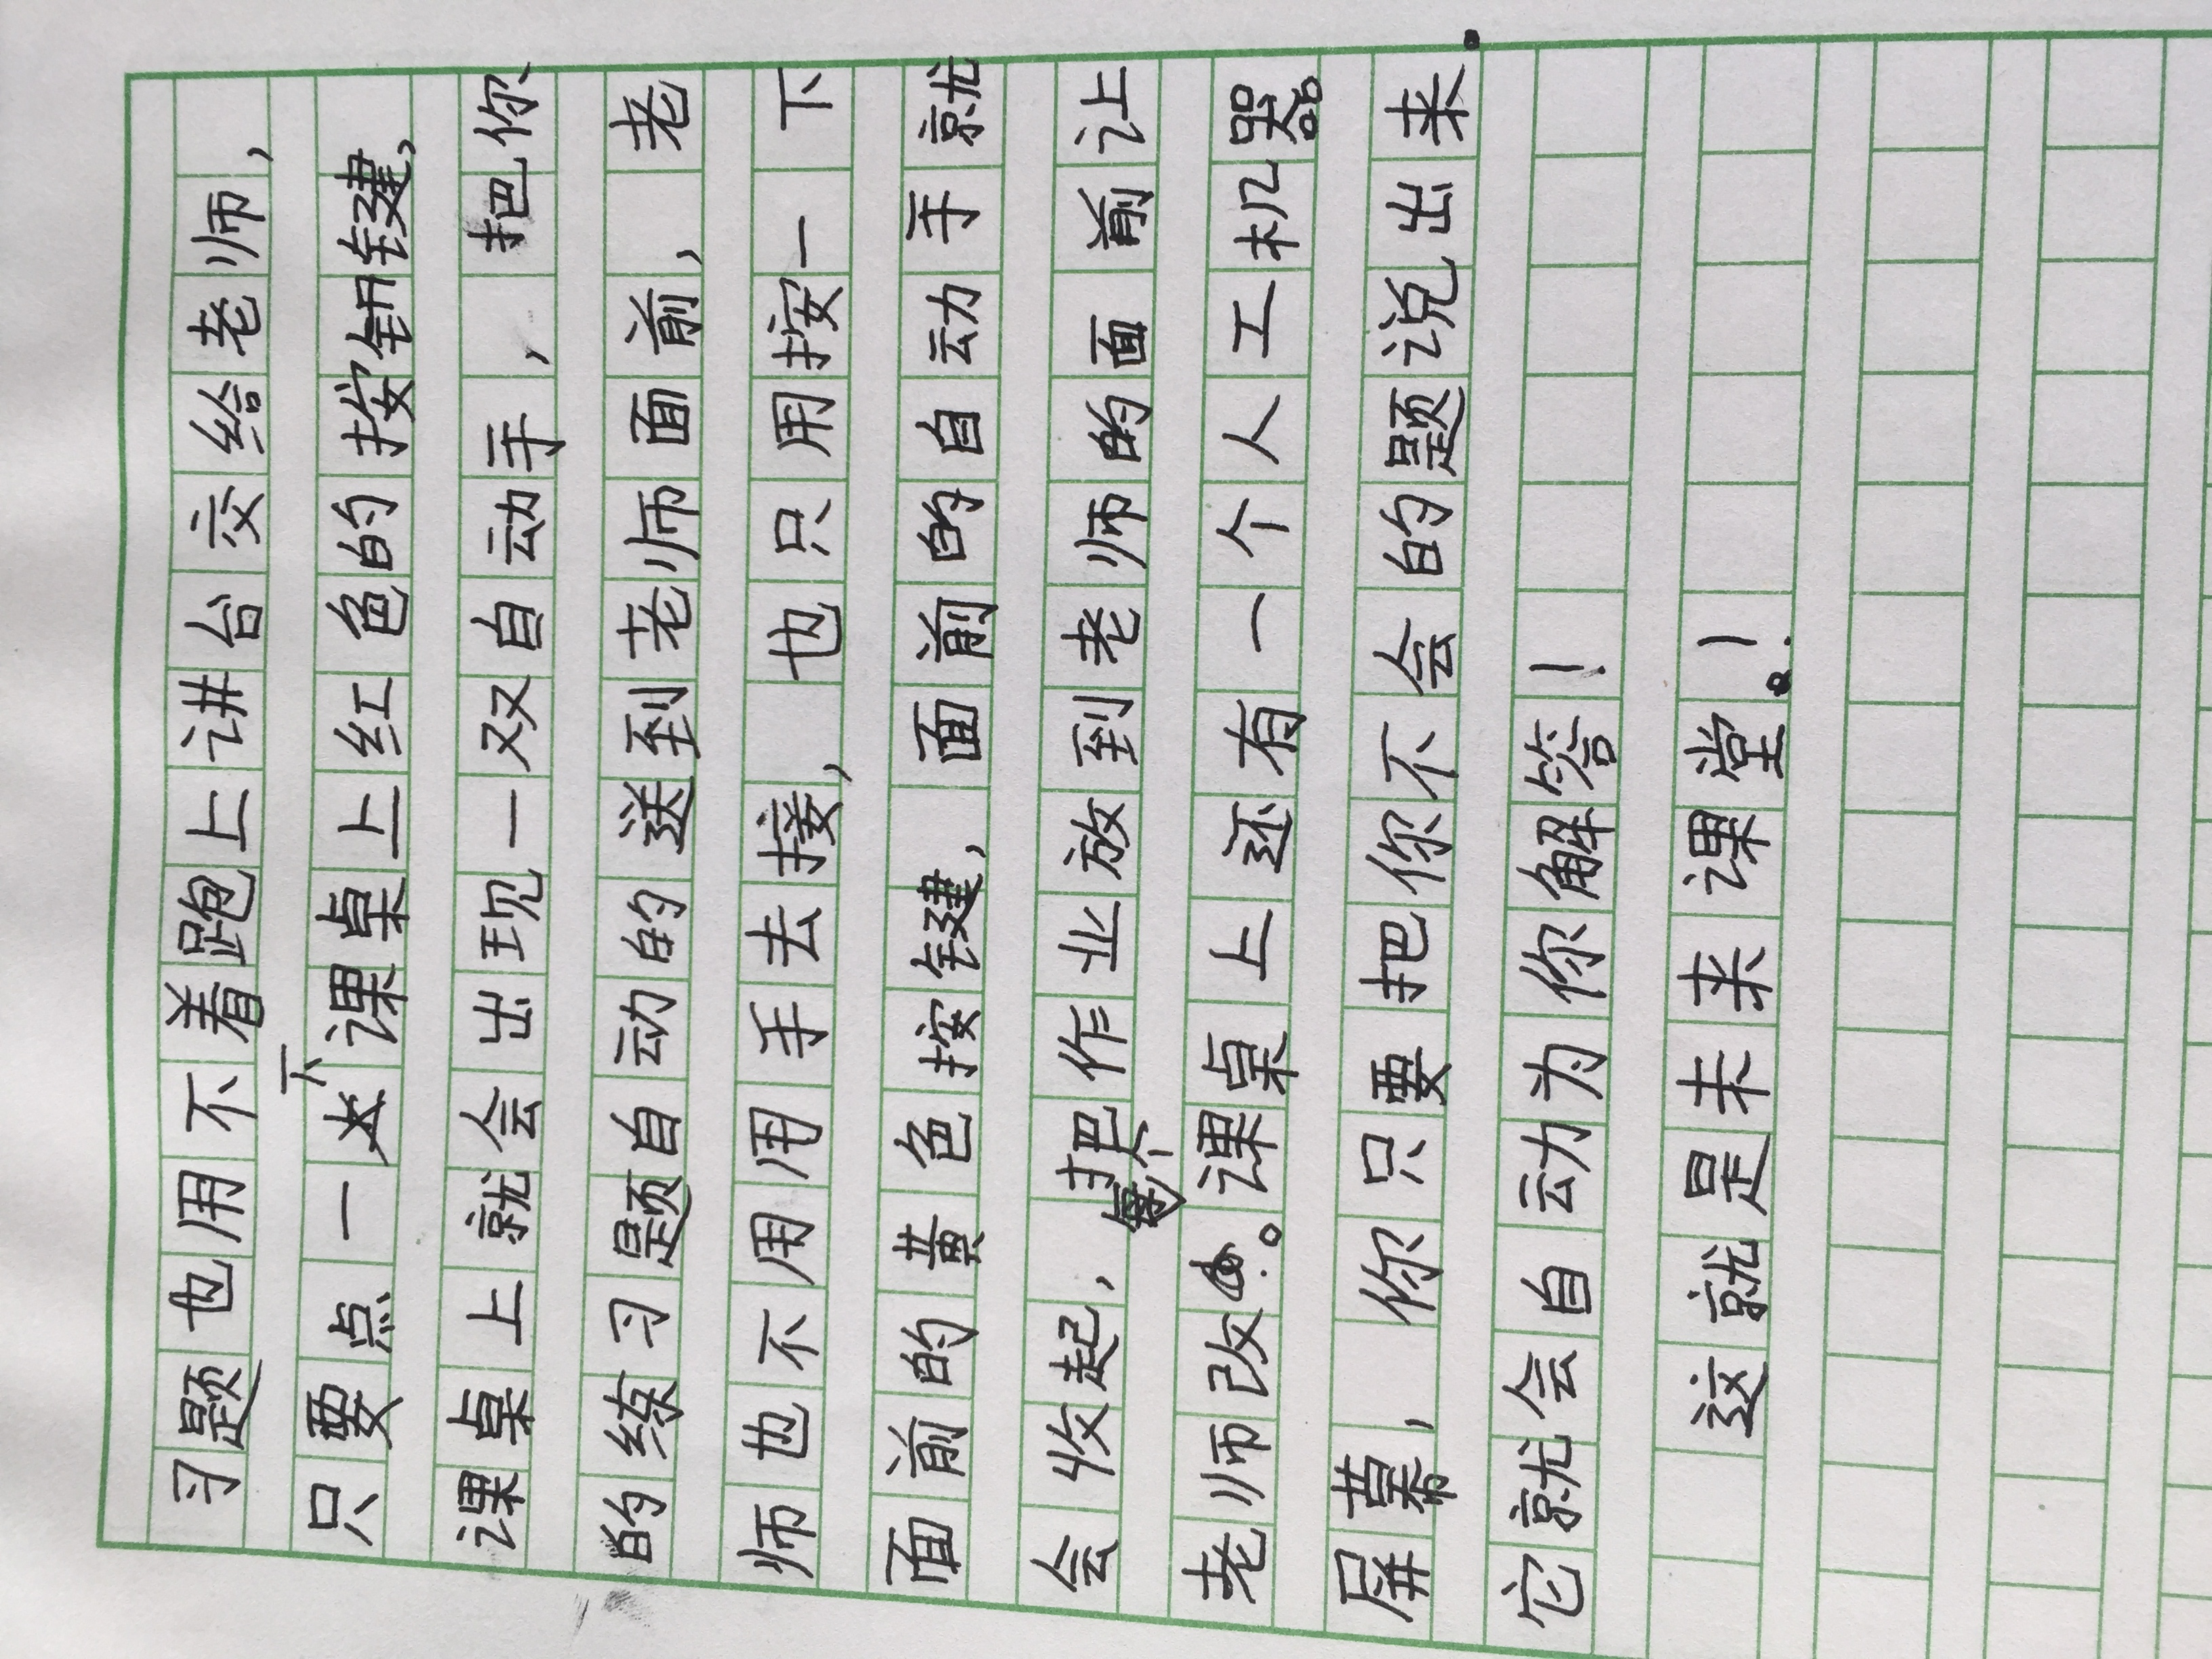 习题也用不着跑上讲台交给老师，
只要点一下课桌上红色的按钮键，
课桌上就会出现一双自动手，把你
的练习题自动的送到老师面前，老
师也不用用手去接，也只用按一下
面前的黄色按键，面前的自动手就
会收起，把作业放到老师的面前让
老师改。每个课桌上还有一个人工机器
屏幕，你只要把你不会的题说出来.
它就会自动为你解答！
这就是未来课堂！